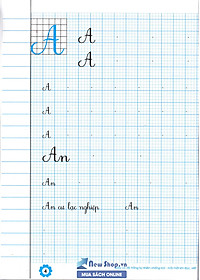 A A
A
A
A
A
An
An
An cư lạc nghiệp An
4
New Shop.vn
MUA SÁCH ONLINE